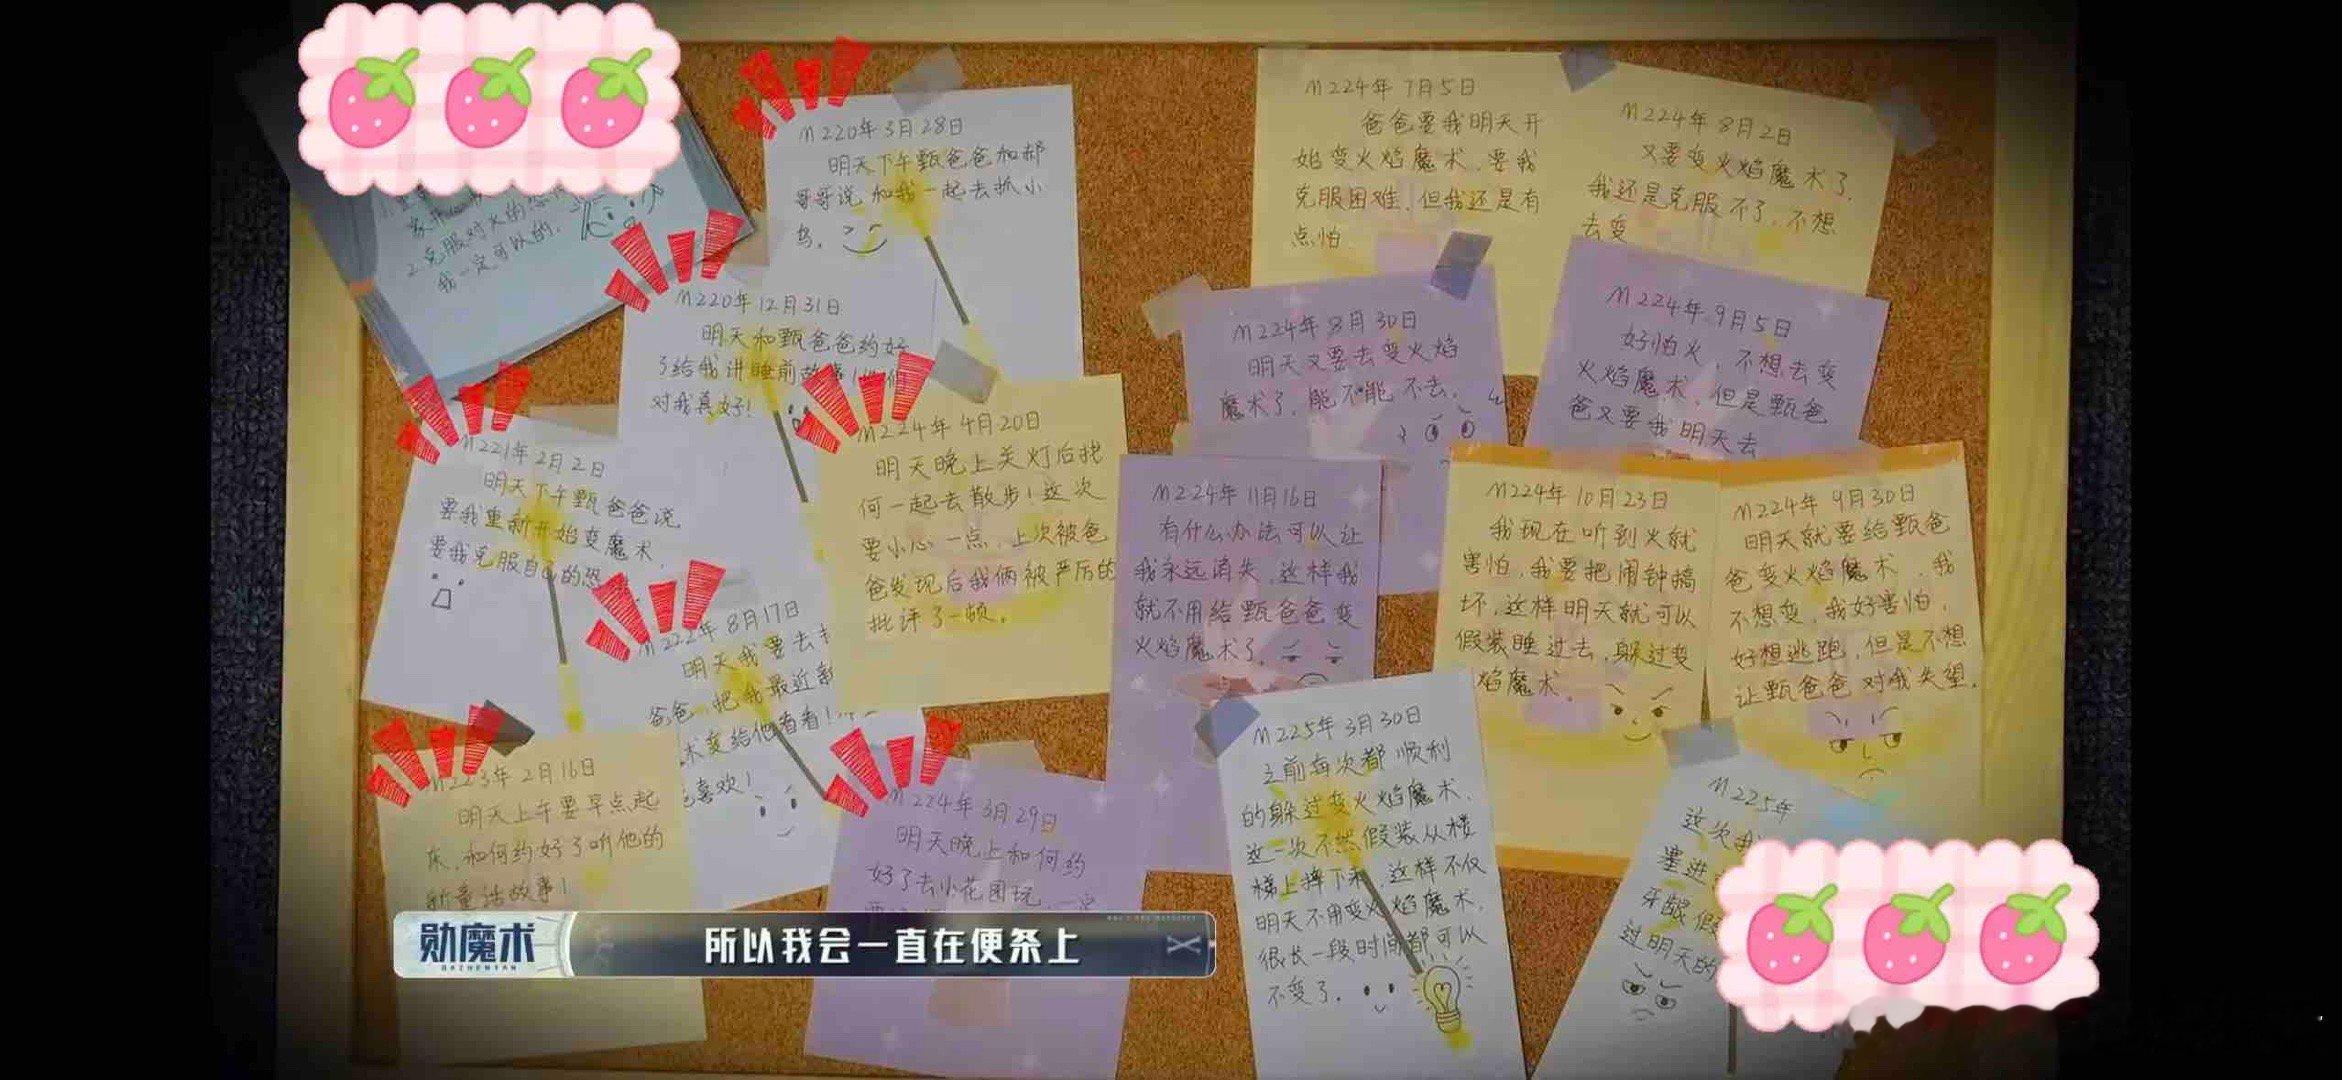 克服对火的恐
我一定可以的.
M220年3月28日
明天下午甄爸爸和郝
哥哥说和我一起去抓小
鸟.
M220年12月31日
明天和甄爸爸约好
了给我讲睡前故事!他们
对我真好!
M221年2月2日
明天下午甄爸爸说
要我重新开始变魔术,
要我克服自己的恐
M222年8月17日
明天我要去
爸爸,把我最近新
术变给他看看!
喜欢!
M223年2月16日
明天上午要早点起
床,和何约好了听他的
新童话故事!
M224年4月20日
明天晚上关灯后找
何一起去散步!这次
要小心一点,上次被爸
爸发现后我俩被严厉的
批评了一顿.
M224年3月29日
明天晚上和何约
好了去小花园玩,一定
M224年7月5日
爸爸要我明天开
始变火焰魔术,要我
克服困难,但我还是有
点怕
M224年8月2日
又要变火焰魔术了,
我还是克服不了,不想
去变
M224年8月30日
明天又要去变火焰
魔术了,能不能不去.
M224年9月5日
好怕火,不想去变
火焰魔术,但是甄爸
爸又要我明天去
M224年11月16日
有什么办法可以让
我永远消失,这样我
就不用给甄爸爸变
火焰魔术了.
M224年10月23日
我现在听到火就
害怕,我要把闹钟搞
坏,这样明天就可以
假装睡过去,躲过变
焰魔术.
M224年9月30日
明天就要给甄爸
爸变火焰魔术,我
不想变,我好害怕,
好想逃跑,但是不想
让甄爸爸对我失望.
M225年3月30日
之前每次都顺利
的躲过变火焰魔术,
这一次不然假装从楼
梯上摔下来,这样不仅
明天不用变火焰魔术,
很长一段时间都可以
不变了.
M225年
这次
塞进
牙龈假
过明天的
勋魔术
DAZHENTAN
所以我会一直在便条上